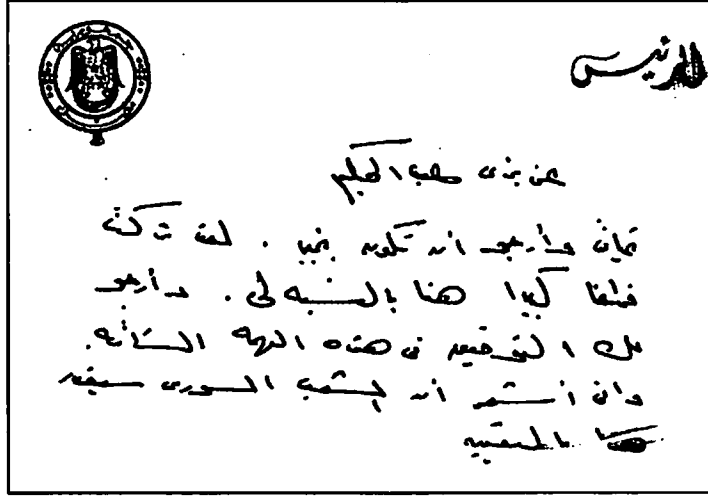 الرئيس
عزيزى عبد الحكيم
تحياتى وأرجو ان تكون بخير . لقد تركت
فراغا كبيرا هنا بالنسبه لى . وأرجو
لك التوفيق فى هذه المهمه الشاقه .
وانى أن الشعب السورى